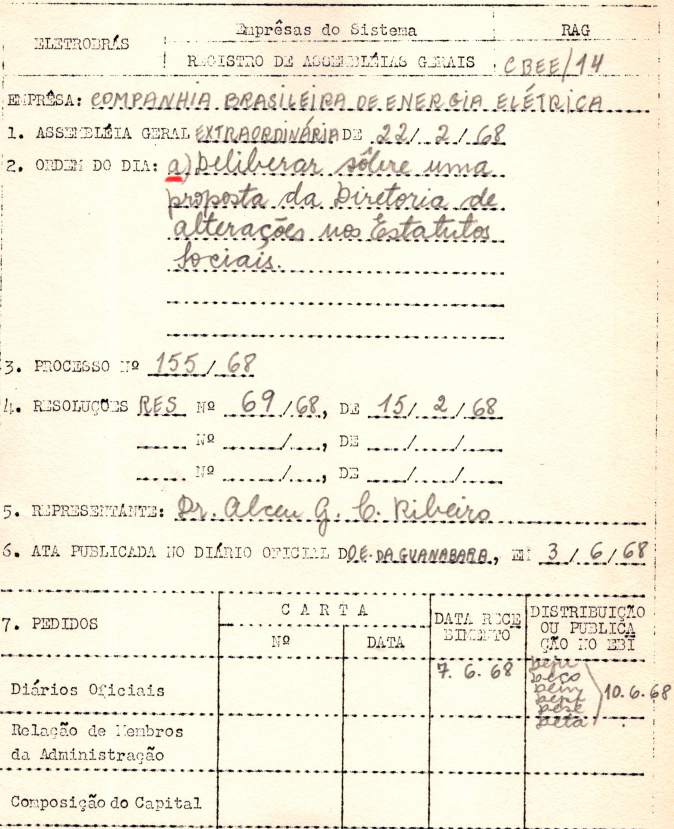 ELETROBRÁS
Emprêsas do Sistema
RAG
REGISTRO DE ASSEMBLÉIAS GERAIS
CBEE/14
EMPRÊSA: COMPANHIA BRASILEIRA DE ENERGIA ELÉTRICA
1. ASSEMBLÉIA GERAL EXTRAORDINÁRIA DE 22/2/68
2. ORDEM DO DIA: a) Deliberar sôbre uma
proposta da Diretoria de
alterações nos Estatutos
Sociais.
3. PROCESSO Nº 155/68
4. RESOLUÇÕES RES Nº 69/68, DE 15/2/68
Nº / , DE / /
Nº / , DE / /
5. REPRESENTANTE: Dr. Alceu G. C. Ribeiro
6. ATA PUBLICADA NO DIÁRIO OFICIAL DO E. DA GUANABARA, EM 3/6/68
7. PEDIDOS
CARTA
Nº
DATA
DATA RECE
BIMENTO
DISTRIBUIÇÃO
OU PUBLICA
ÇÃO NO EBI
Diários Oficiais
7.6.68
10.6.68
Relação de Membros
da Administração
Composição do Capital